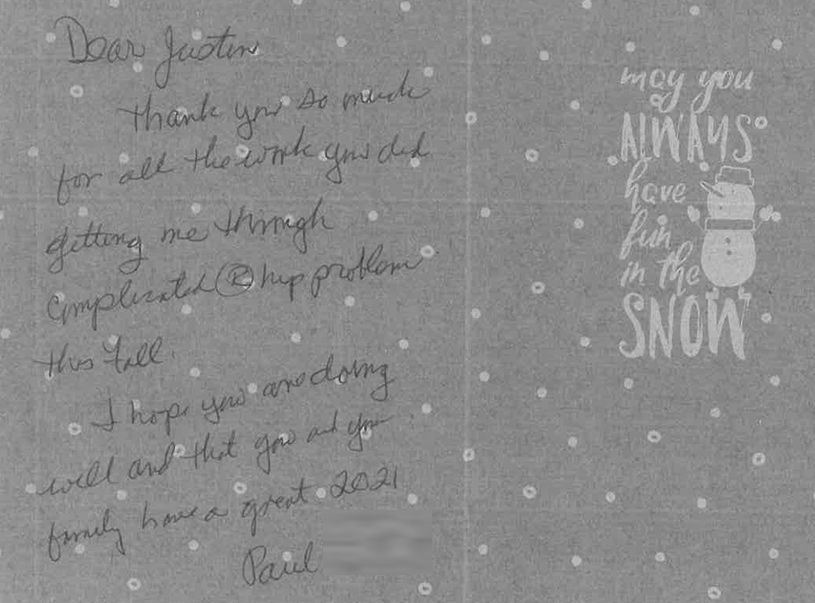 Dear Justin
Thank you so much
for all the work you did
getting me through
complicated Ⓡ hip problem
this Fall.
I hope you are doing
well and that you and your
family have a great 2021
Paul
may you
ALWAYS
have
fun
in the
SNOW